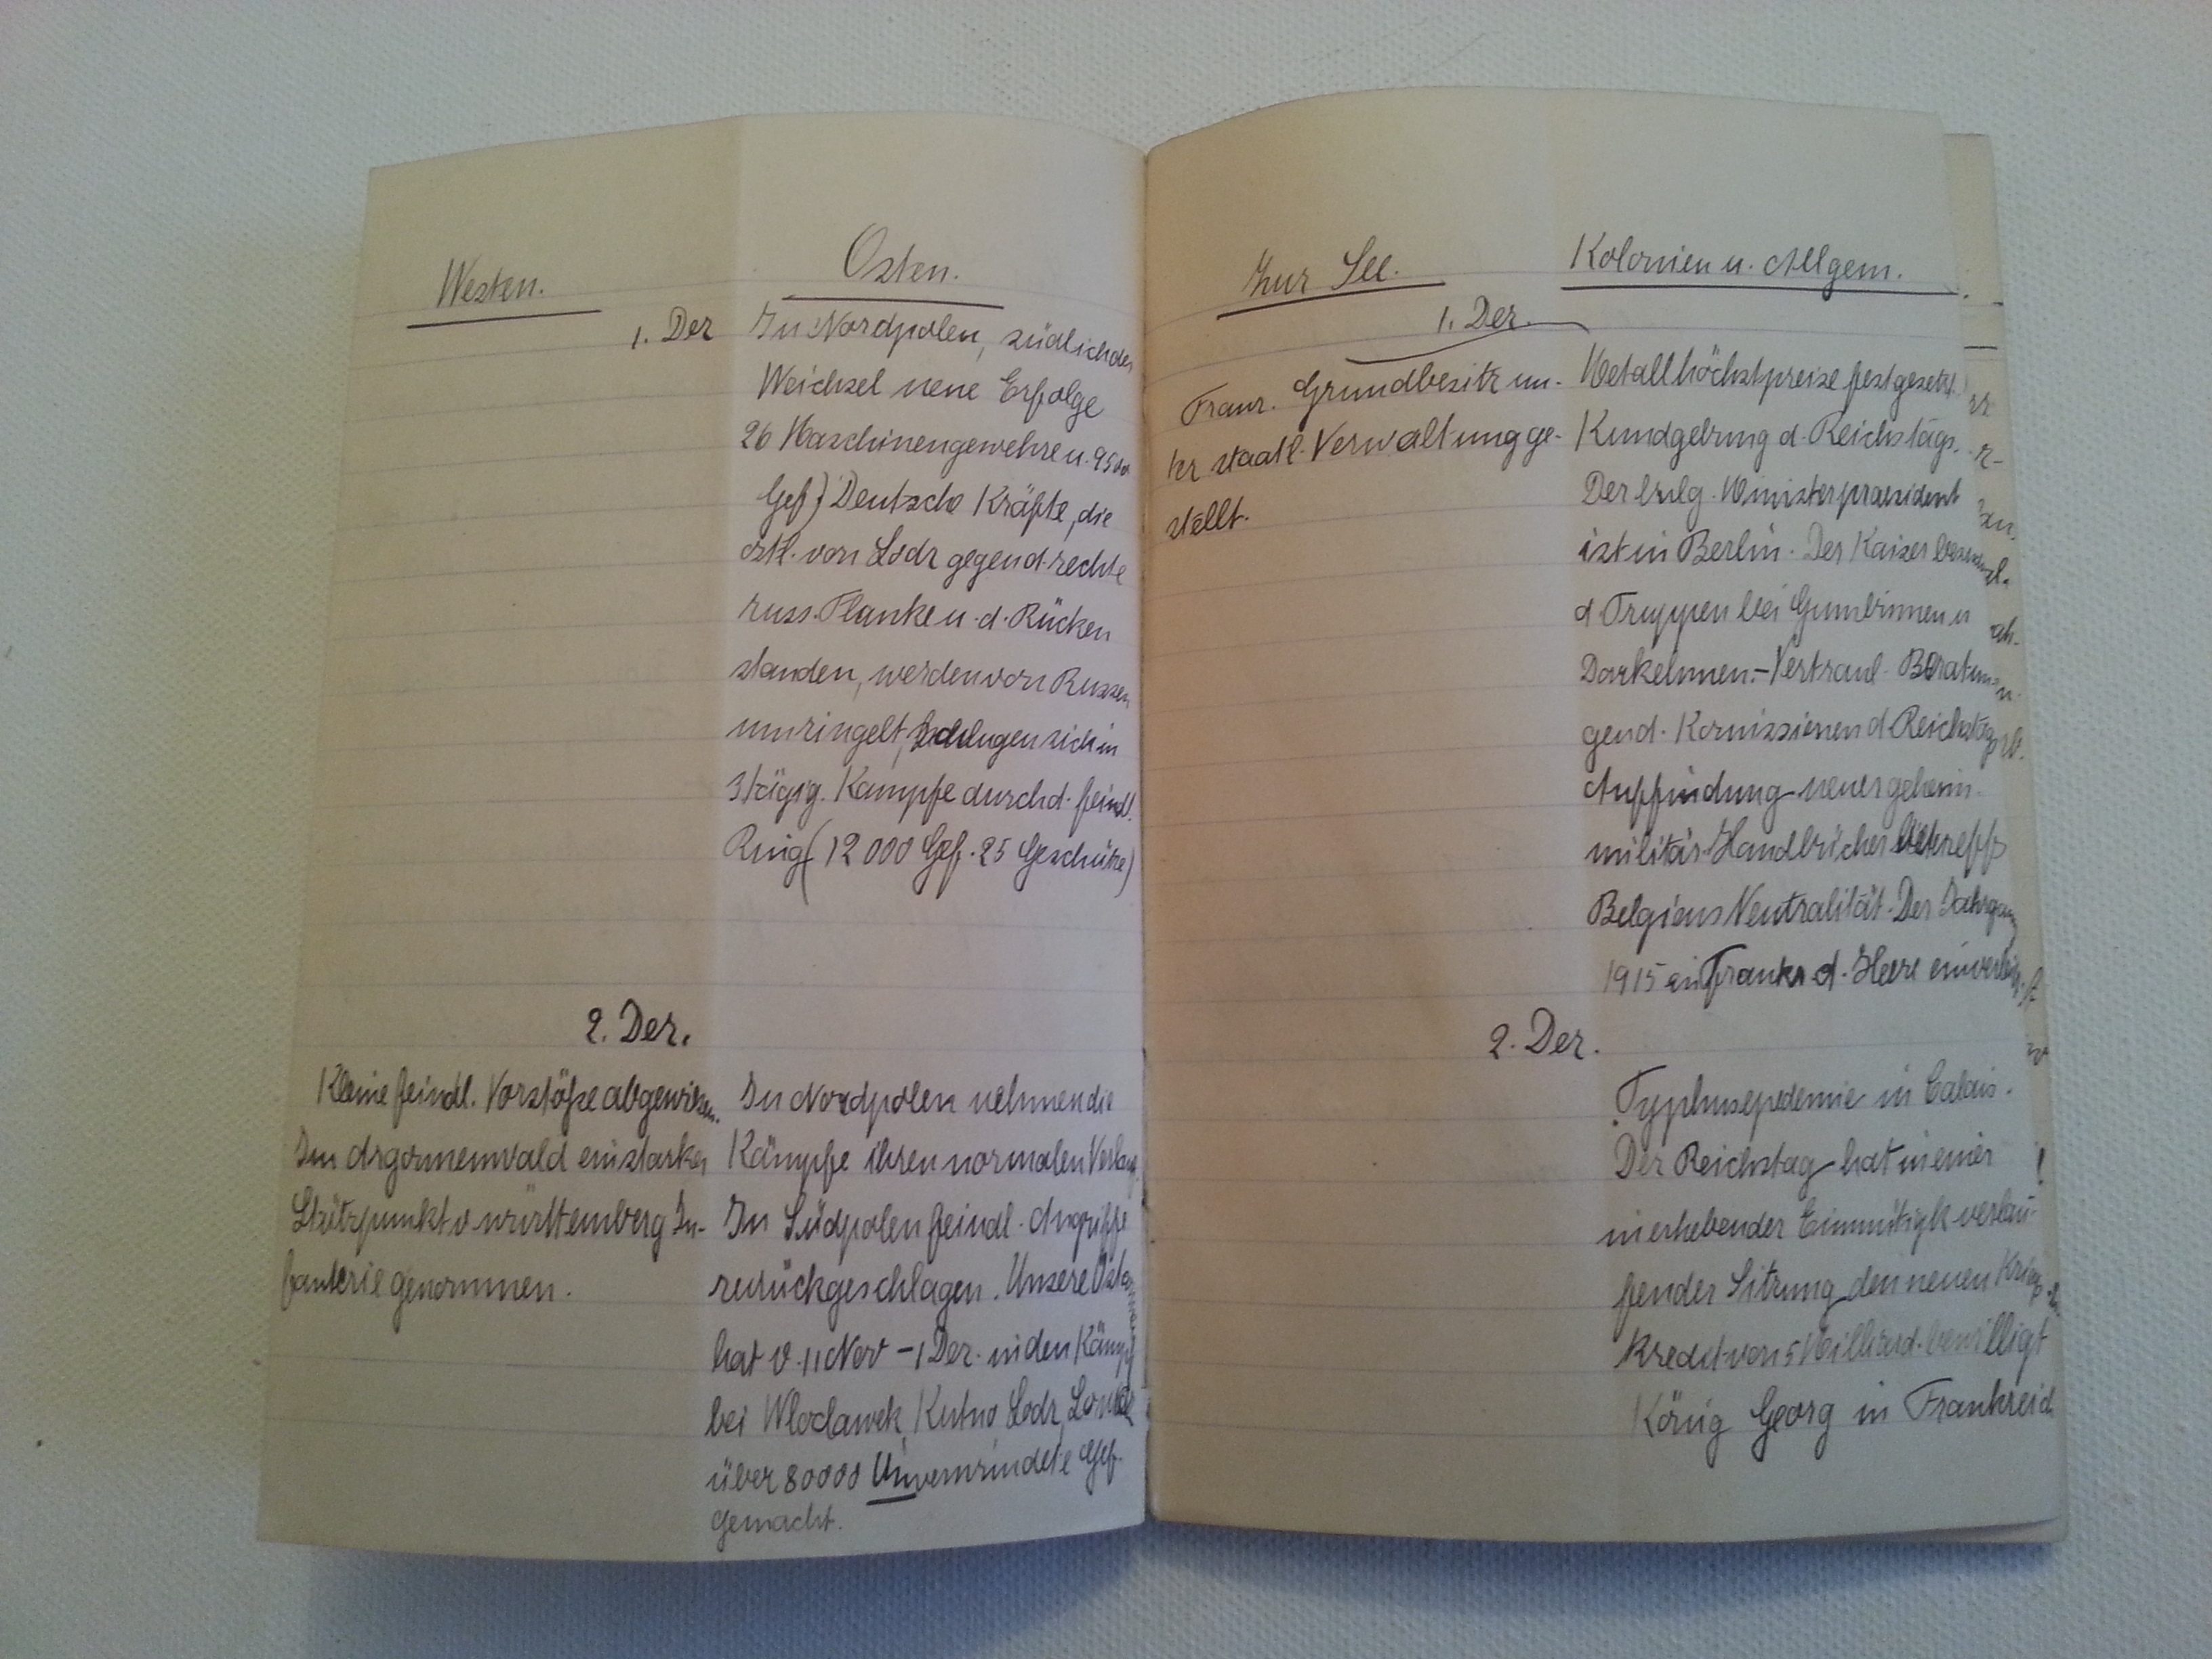 Westen.
Osten.
1. Dez
In Nordpolen, südlich der
Weichsel neue Erfolge
26 Maschinengewehre u. 9500
Gef) Deutsche Kräfte, die
östl. von Lodz gegen d. rechte
russ. Flanke u. d. Rücken
standen, werden von Russen
umringelt, schlugen sich in
3tägig. Kampfe durch d. feindl.
Ring (12 000 Gef. 25 Geschütze)
2. Dez.
Kleine feindl. Vorstöße abgewiesen.
Im Argonnenwald ein starker
Stützpunkt v württemberg In-
fanterie genommen.
In Nordpolen nehmen die
Kämpfe ihren normalen Verlauf.
In Südpolen feindl. Angriffe
zurückgeschlagen. Unsere Ostarmee
hat v. 11 Nov – 1 Dez. in den Kämpf
bei Wloclawek, Kutno Lodz, Lowicz
über 80000 Unverwundete Gef.
gemacht.
Zur See.
Kolonien u. Allgem.
1. Dez.
Franz. Grundbesitz un-
ter staatl. Verwaltung ge-
stellt.
Metallhöchstpreise festgesetzt
Kundgebung d. Reichstags.
Der bulg. Ministerpraesident
ist in Berlin. Der Kaiser besucht
d Truppen bei Gumbinnen u
Darkehmen. – Vertraul. Beratun
gen d. Komissionen d Reichstags
Auffindung neuer geheim.
militär. Handbücher betreffs
Belgiens Neutralität. Der Jahrgang
1915 in Frankr. d. Heere einverleib
2. Dez.
Typhusepedemie in Calais.
Der Reichstag hat in einer
in erhebender Einmütigk verlau-
fender Sitzung den neuen Kriegs
kredit von 5 Milliard. bewilligt
König Georg in Frankreich